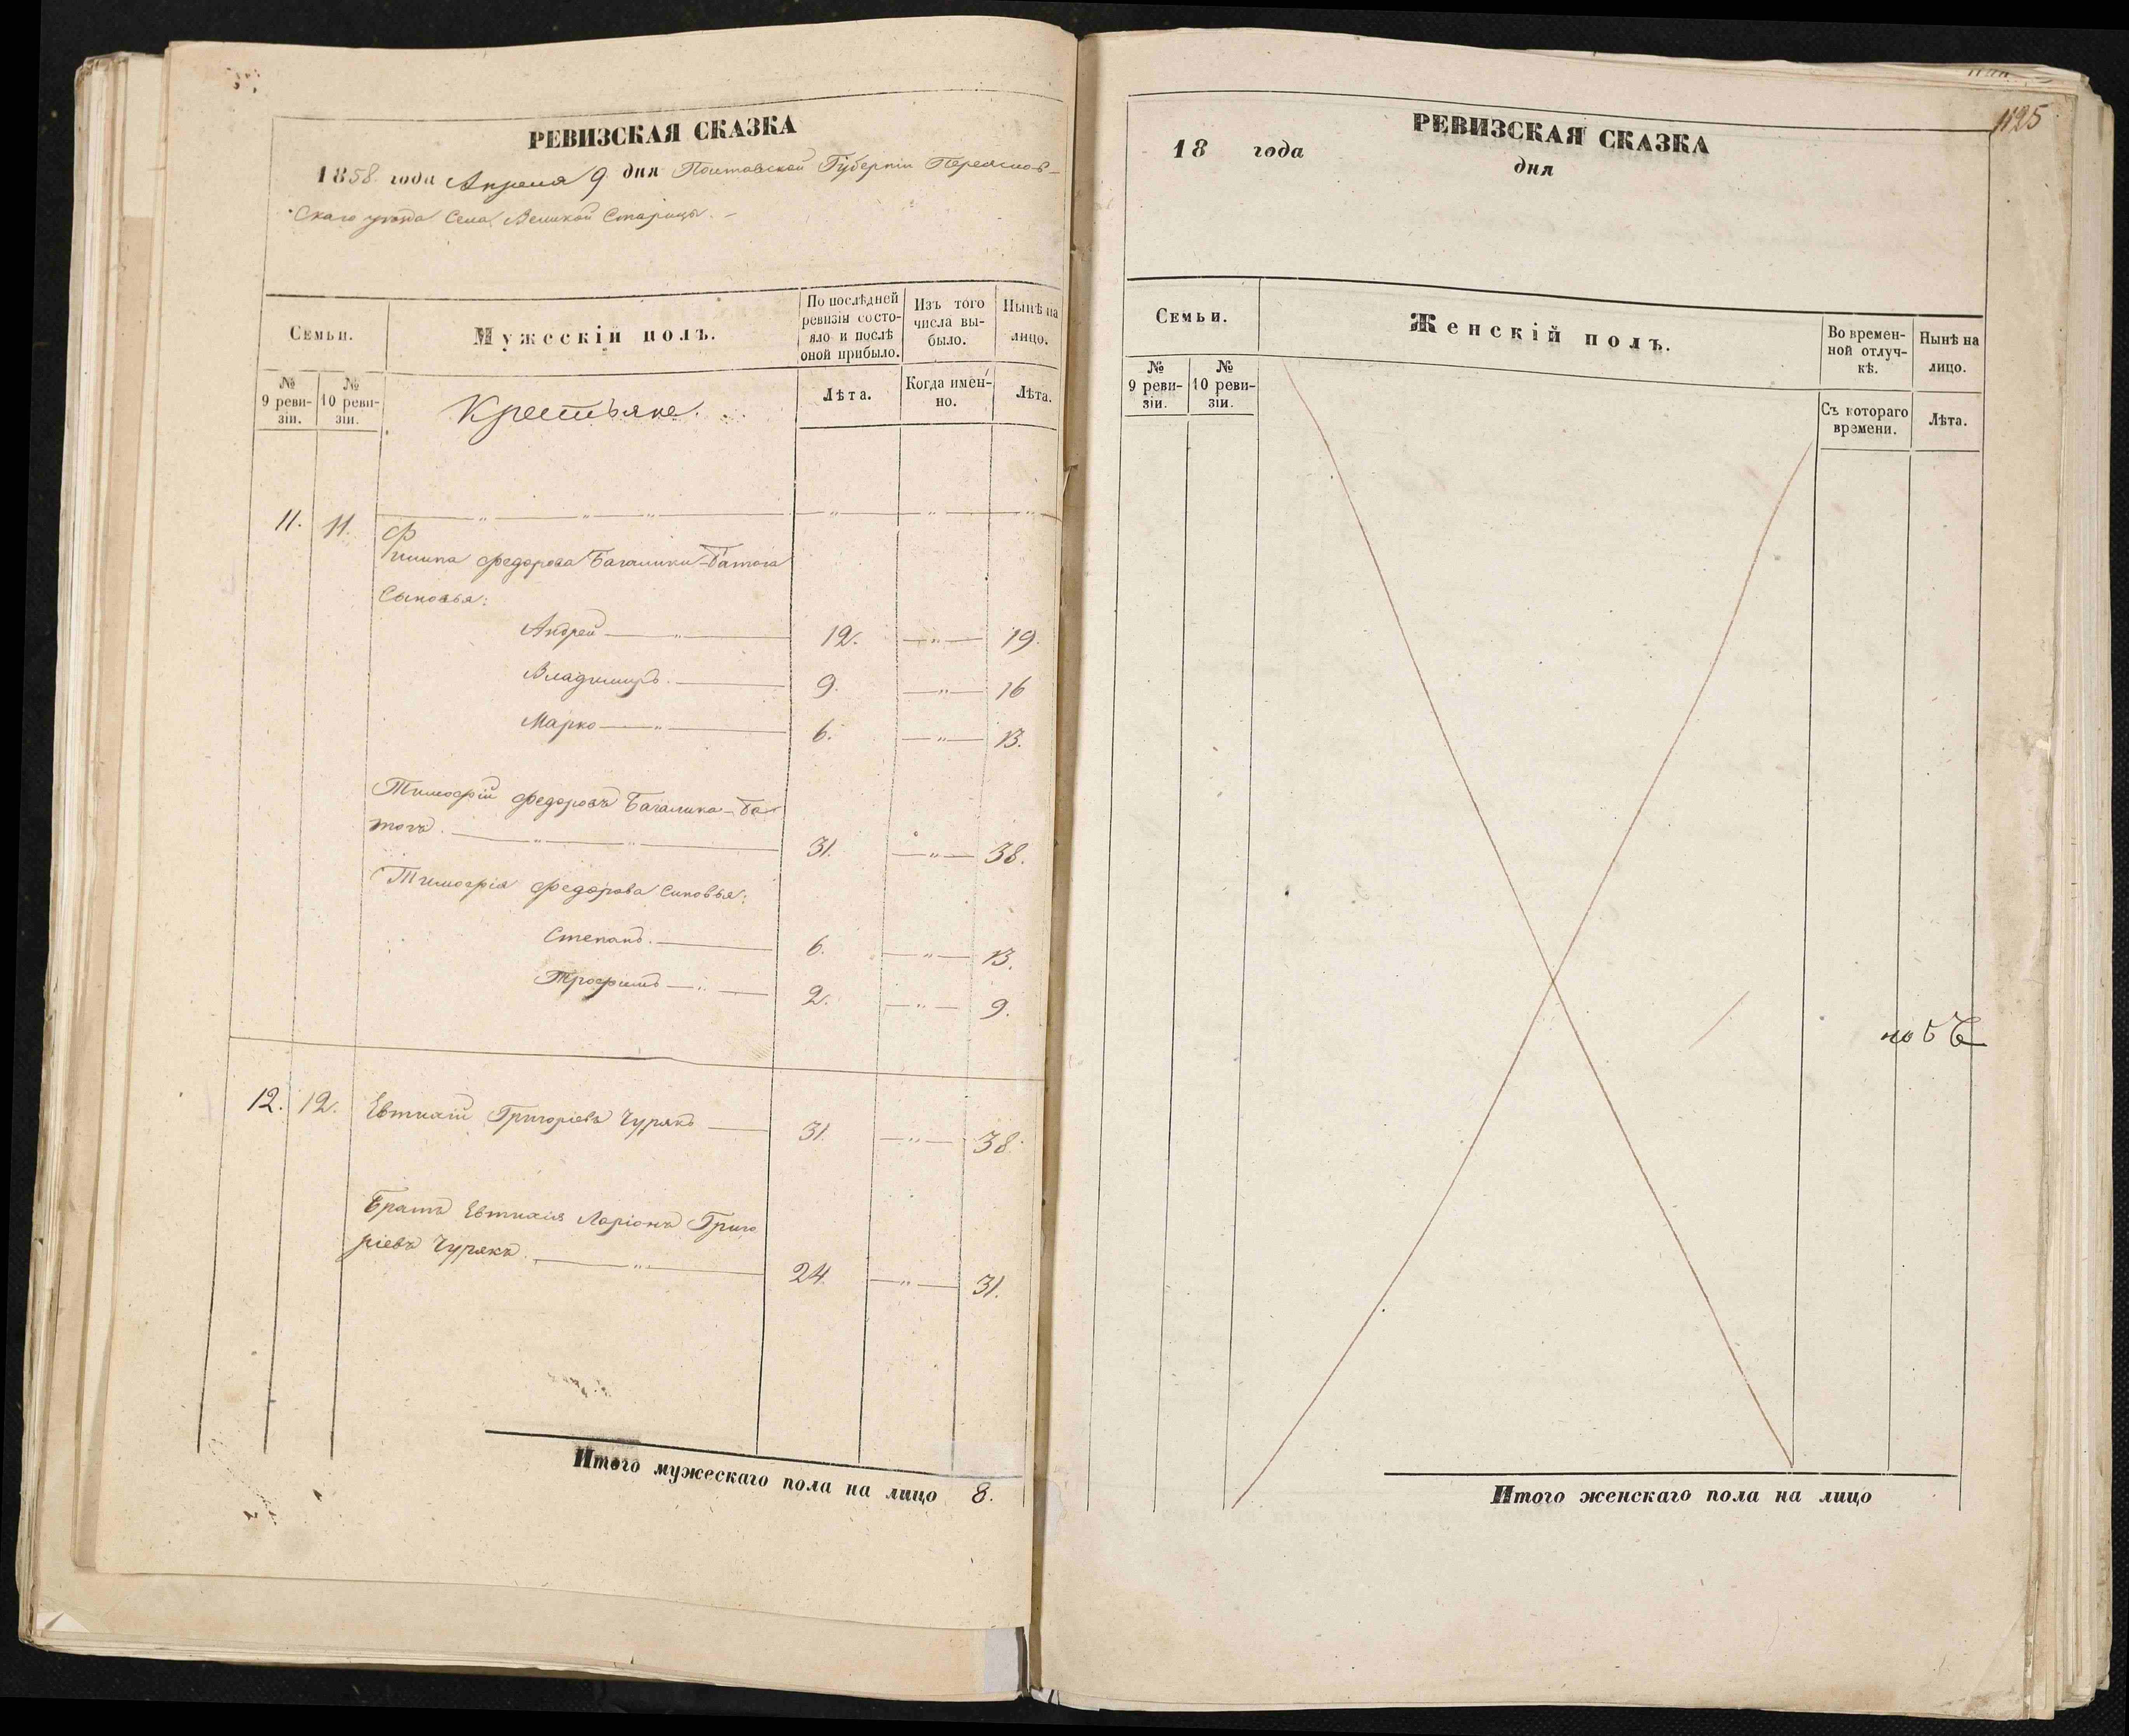 РЕВИЗСКАЯ СКАЗКА
1858 года Апреля 9 дня Полтавской Губерніи Переяслов-
скаго уезда Села Великой Старицы. –
Семьи.
Мужескій полъ.
По послѣдней ревизіи состо-яло и послѣ оной прибыло.
Изъ того числа вы-было.
Нынѣ на лицо.
№ 9 реви-зіи.
№ 10 реви-зіи.
Крестьяне.
Лѣта.
Когда имен-но.
Лѣта.
11. 11.
Филипа Федорова Багалики-Батога
Сыновья:
Андрей 12. 19.
Владимиръ. 9. 16
Марко 6. 13.
Тимофій Федоровъ Багалика-Ба-
тогъ. 31. 38.
Тимофія Федорова Синовья:
Степанъ. 6. 13.
Трофимъ 2. 9.
12. 12. Евтихій Григоріевъ Чурякъ 31. 38.
Братъ Евтихія Ларіонъ Григо
ріевъ Чурякъ. 24. 31.
Итого мужескаго пола на лицо 8.
1125
РЕВИЗСКАЯ СКАЗКА
18 года дня
Семьи.
Женскій полъ.
Во времен-ной отлуч-кѣ.
Нынѣ на лицо.
№ 9 реви-зіи.
№ 10 реви-зіи.
Съ котораго времени.
Лѣта.
Итого женскаго пола на лицо